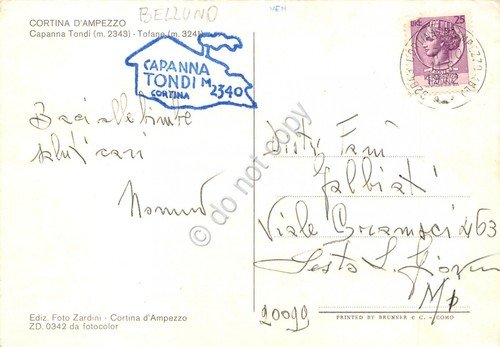 BELLUNO
VEN
CORTINA D'AMPEZZO
Capanna Tondi (m. 2343) - Tofane (m. 3241)
CAPANNA
TONDI M
CORTINA 2340
LIRE 25
Baci alle bimbe
saluti cari
Dist. Fam
Galbiati
Viale Gramsci 463
Sesto S. Giovanni
Mi
20099
do not copy
Ediz. Foto Zardini - Cortina d'Ampezzo
ZD. 0342 da fotocolor
PRINTED BY BRUNNER & C. - COMO